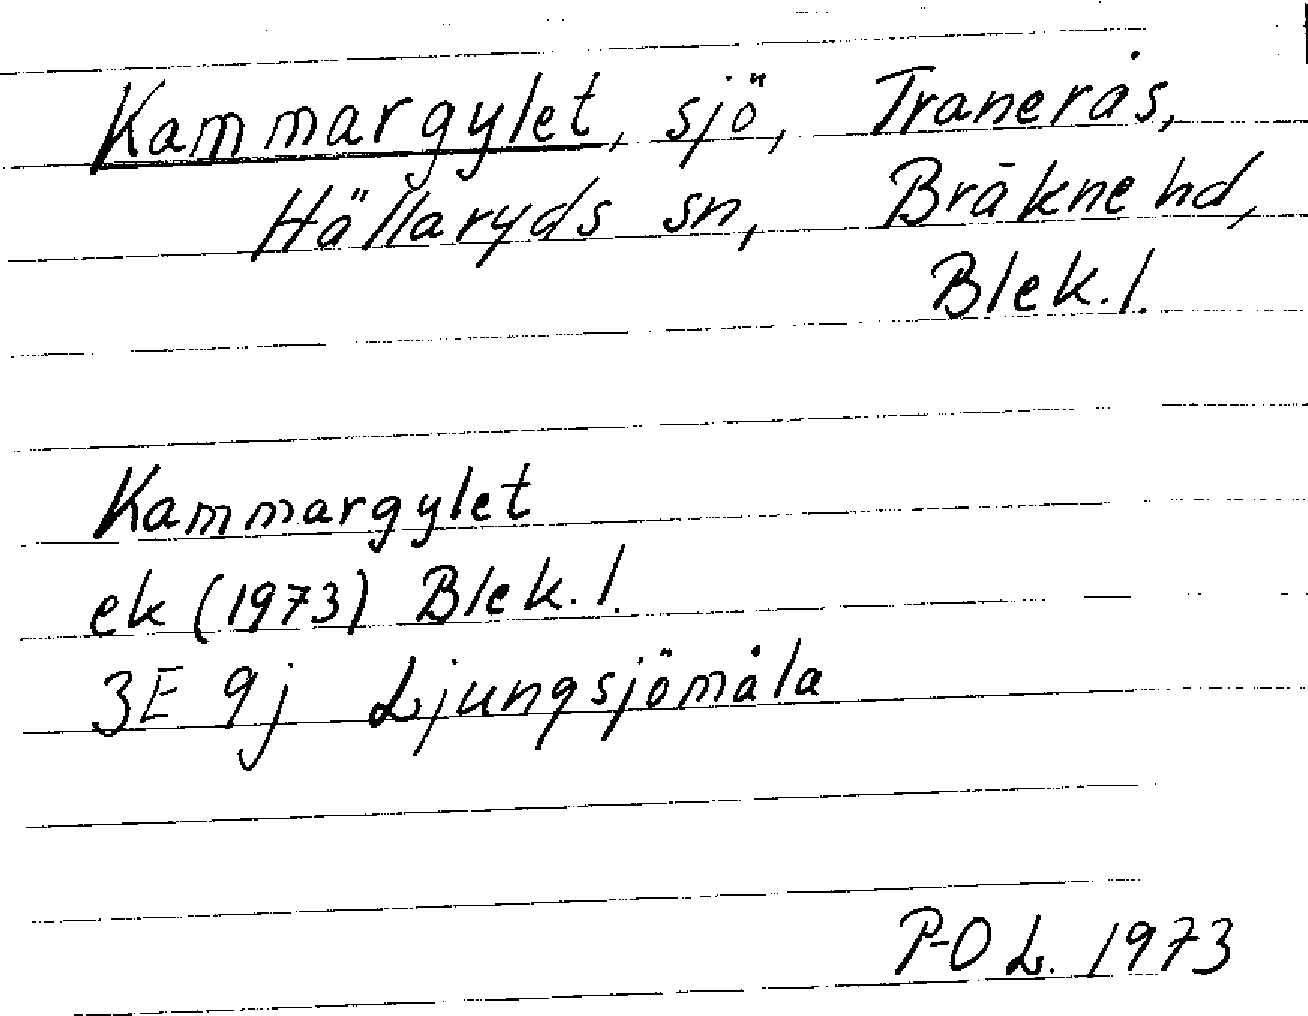 Kammargylet, sjö, Tranerås,
Hällaryds sn, Bräkne hd,
Blek.l.
Kammargylet
ek (1973) Blek.l.
3E 9j Ljungsjömåla
P-O L. 1973